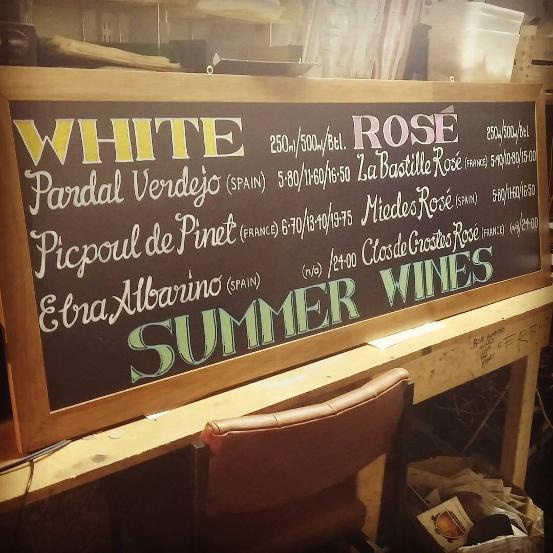 WHITE 250m/500m/Btl.
Pardal Verdejo (SPAIN) 5·80/11·60/16·50
Picpoul de Pinet (FRANCE) 6·70/13·40/19·75
Ebra Albarino (SPAIN) (n/a) /24·00
ROSÉ 250m/500m/Btl.
La Bastille Rosé (FRANCE) 5·40/10·80/15·00
Miedes Rosé (SPAIN) 5·80/11·60/16·50
Clos de Crostes Rosé (FRANCE) (n/a)/24·00
SUMMER WINES